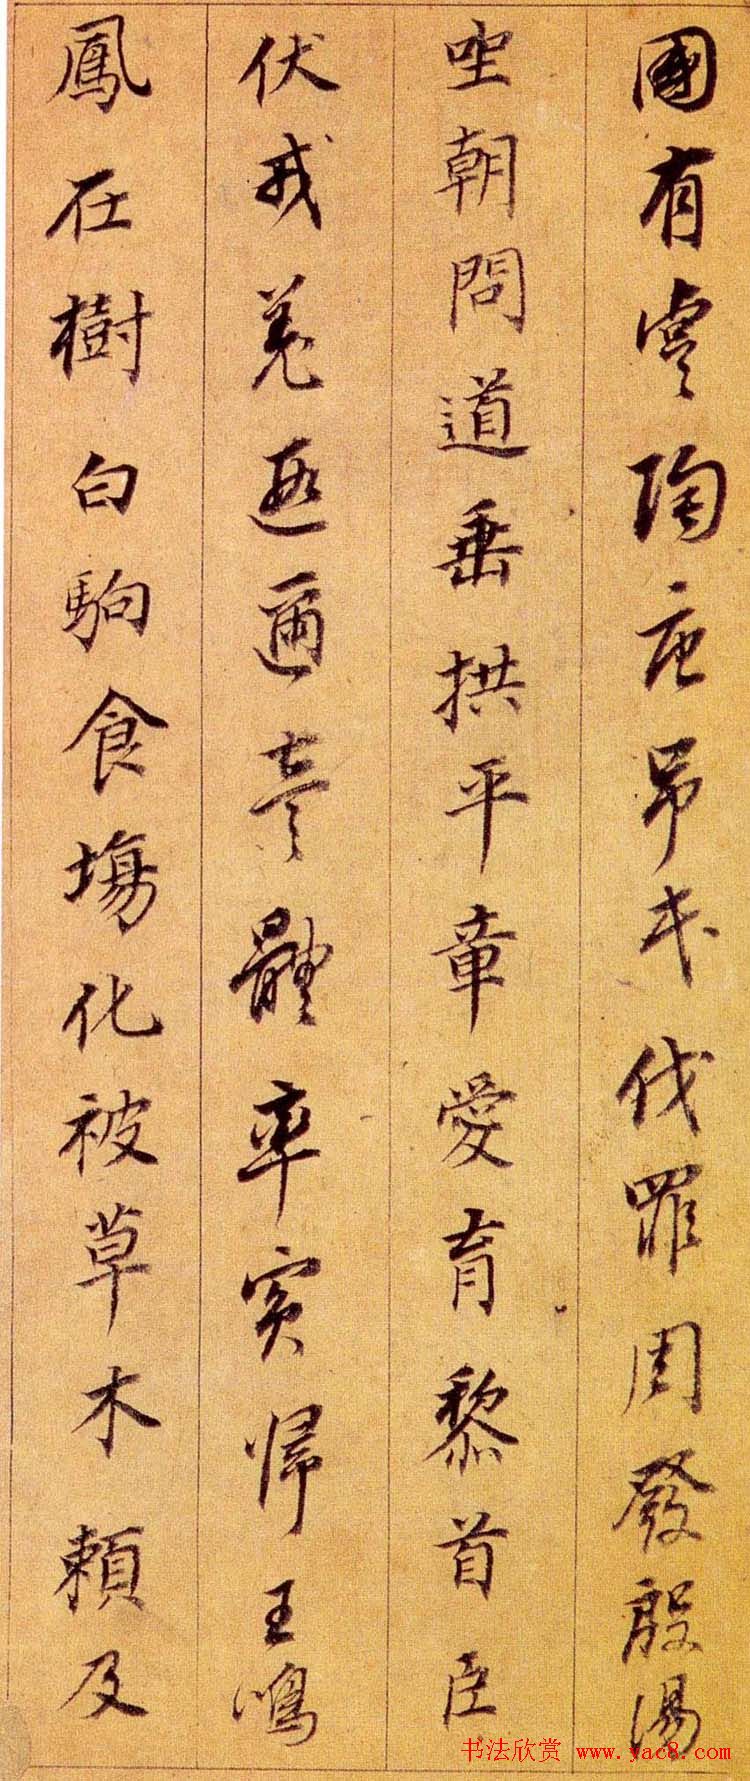 國有虞陶唐吊民伐罪周發殷湯
坐朝問道垂拱平章愛育黎首臣
伏戎羌遐邇壹體率賓歸王鳴
鳳在樹白駒食場化被草木賴及
书法欣赏 www.yac8.com